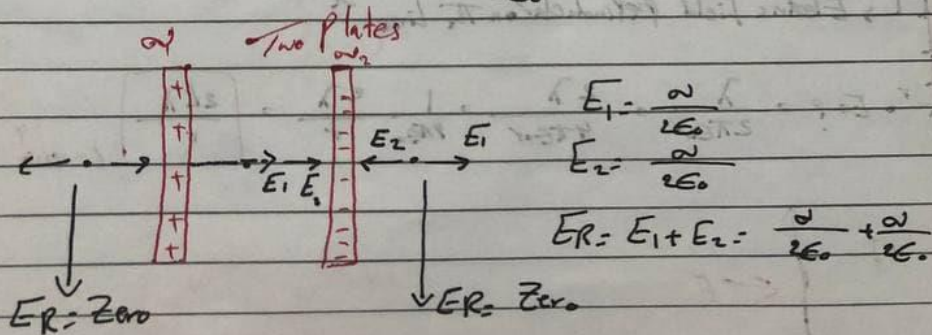 Two Plates
σ
σ2
+
+
+
+
+
-
-
-
-
-
-
E1 E2
E2 E1
E1 = σ/2ε0
E2 = σ/2ε0
ER = E1 + E2 = σ/2ε0 + σ/2ε0
ER = Zero
ER = Zero